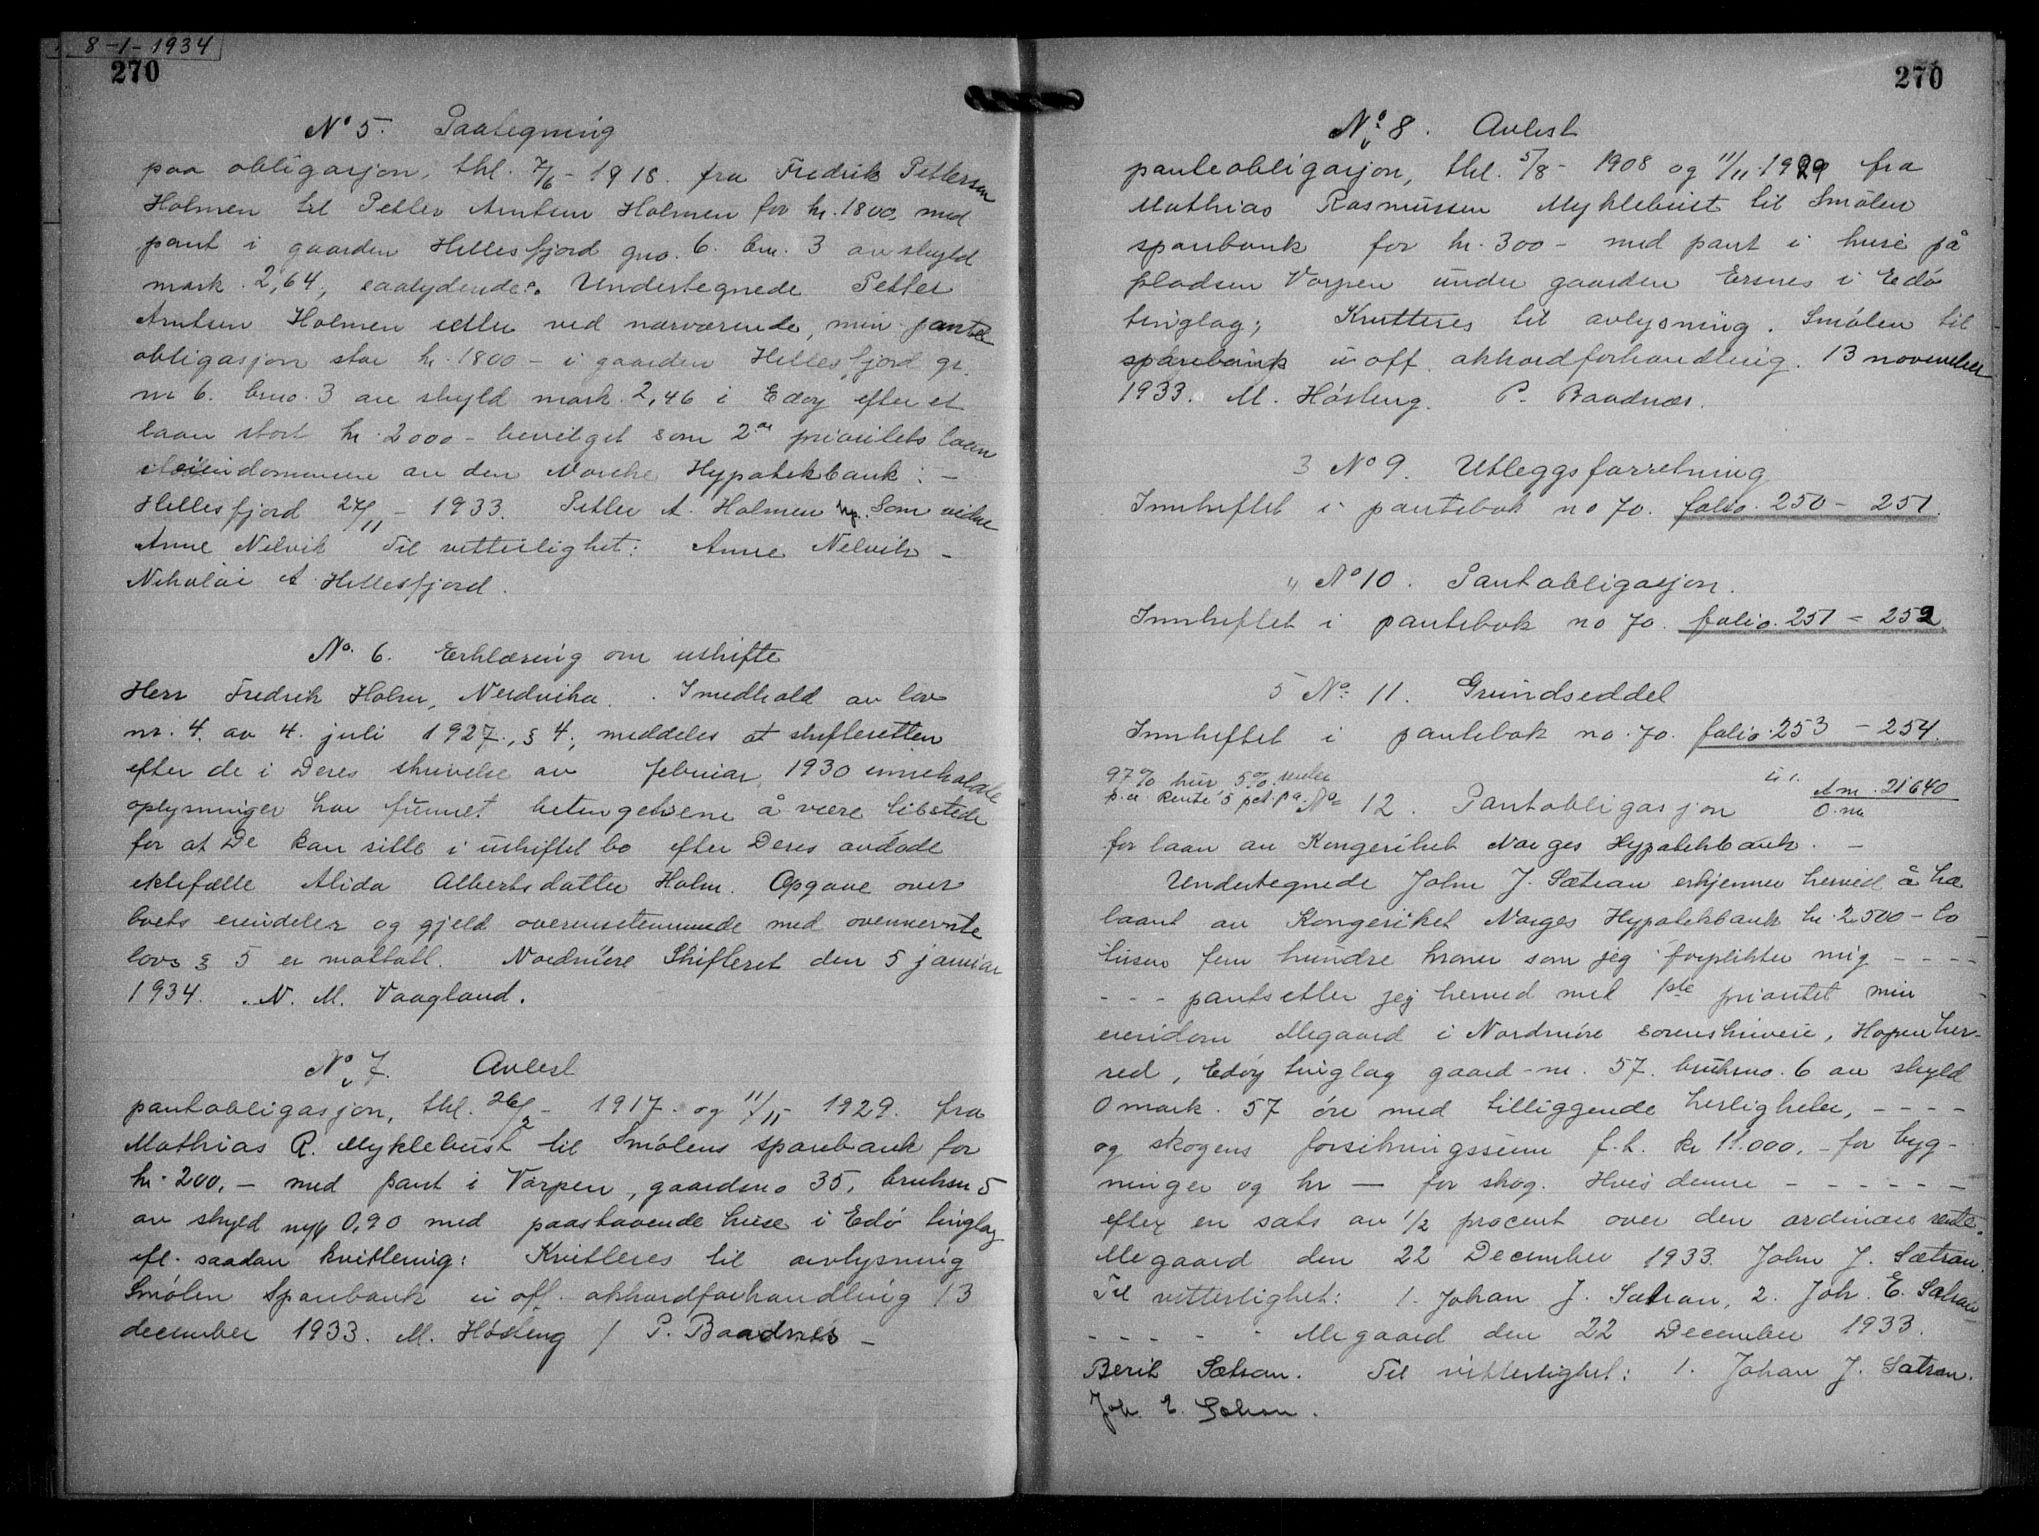 8-1-1934
270
No 5. Paategning
paa obligasjon, thl. 7/6-1918. fra Fredrik Pettersen
Holmen til Petter Arntsen Holmen for kr. 1800 med
pant i gaarden Hellesfjord gno. 6. bru. 3 av skyld
mark 2,64, saalydende: Undertegnede Petter
Arntsen Holmen setter ved nærværende, min pante
obligasjon stor kr. 1800 - i gaarden Hellesfjord gr.
nr 6. brno. 3 av skyld mark. 2,46 i Edøy efter et
laan stort kr. 2000 - bevilget som 2en prioritets laan
eiendommene av den Norske Hypotekbank: -
Hellesfjord 27/11 - 1933. Petter A. Holmen Som vidne
Anne Nelvik Til vitterlighet: Anne Nelvik -
Nikolai A. Hellesfjord.
No. 6. Erklæring om uskifte
Herr Fredrik Holm, Nerdvika. I medhold av lov
nr. 4. av 4. juli 1927., § 4., meddeles at skifteretten
efter de i Deres skrivelse av februar 1930 inneholdte
oplysninger har funnet betingelsene å være tilstede
for at De kan sitte i uskiftet bo efter Deres avdøde
ektefælle Alida Albertsdatter Holm. Opgave over
boets eiendeler og gjeld overensstemmende med ovennevnte
lovs § 5 er mottatt. Nordmøre Skifteret den 5 januar
1934. N. M. Vaagland.
No 7. Avlest
pantobligasjon, thl. 26/2 - 1917. og 11/11 - 1929. fra
Mathias R. Myklebust til Smølens sparebank for
kr. 200,- med pant i Varpen, gaardsno 35, bruksn 5
av skyld ny 0,90 med paastaaende huse i Edø tinglag
efl. saadan kvittering: Kvitteres til avlysning
Smølen Sparebank u off. akkordforhandling 13
december 1933. M. Høsteng / P. Baadnes -
270
No 8. Avlest
panteobligasjon, thl. 5/8 - 1908 og 11/11-1929 fra
Mathias Rasmussen Myklebust til Smølen
sparebank for kr. 300 - med pant i huse på
pladsen Varpen under gaarden Ersnes i Edø
tinglag; Kvitteres til avlysning. Smølen til
sparebank u off. akkordforhandling. 13 november
1933. M. Høsteng. P. Baadnes.
3 No 9. Utleggsforretning
Innheftet i pantebok no 70. folio. 250 - 251.
" No 10. Pantobligasjon.
Innheftet i pantebok no 70. folio. 251 - 252
5 No. 11. Grundseddel
Innheftet i pantebok no. 70. folio. 253 - 254.
97% kur 5% rente
p.a. Rente 5 pct. p.a. No 12. Pantobligasjon A m. 21640
O. nr
for laan av Kongeriket Norges Hypotekbank. -
Undertegnede John J. Sætran erkjenner herved å ha
laant av Kongeriket Norges Hypotekbank kr. 2500 - to
tusen fem hundre kroner som jeg forplikter mig - - - -
- - - pantsetter jeg herved med 1ste prioritet min
eiendom Megaard i Nordmøre sorenskriveri, Hopen her-
red, Edøy tinglag gaard-nr. 57. bruksno. 6 av skyld
0 mark. 57 øre med tilliggende herligheter, - - - -
og skogens forsikringssum f.t. kr 11.000,- for byg-
ninger og kr — for skog. Hvis denne - - - - - -
efter en sats av 1/2 procent over den ordinære rente.
Megaard den 22 December 1933. John J. Sætran.
Til vitterlighet: 1. Johan J. Sætran, 2. Joh. E. Sætran
- - - - - - Megaard den 22 December 1933.
Berit Sætran. Til vitterlighet: 1. Johan J. Sætran.
Joh. E. Sætran.